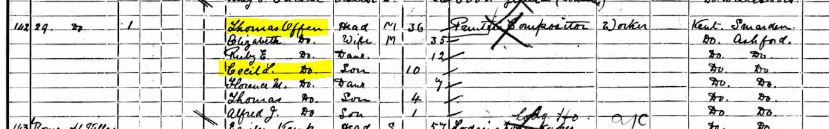 142 29. Do 1 Thomas Offen Head M 36 Printer Compositor Worker Kent. Smarden
Elizabeth Do. Wife M 35 Do. Ashford.
Ruby E. Do. Daur 12 Do. Do.
Cecil L. Do. Son 10 Do. Do.
Florence M. Do. Daur 7 Do. Do.
Thomas Do. Son 4 Do. Do.
Alfred J. Do. Son 1 Do. Do.
143 Head S 57